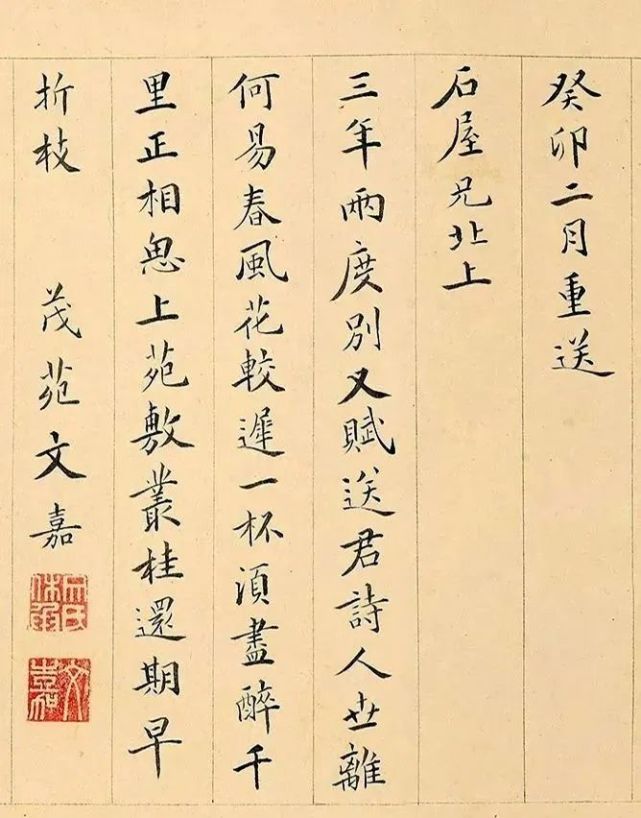 癸卯二月重送
石屋兄北上
三年兩度別又賦送君詩人世離
何易春風花較遲一杯須盡醉千
里正相思上苑敷叢桂還期早
折枝　茂苑文嘉
文氏休承
文嘉